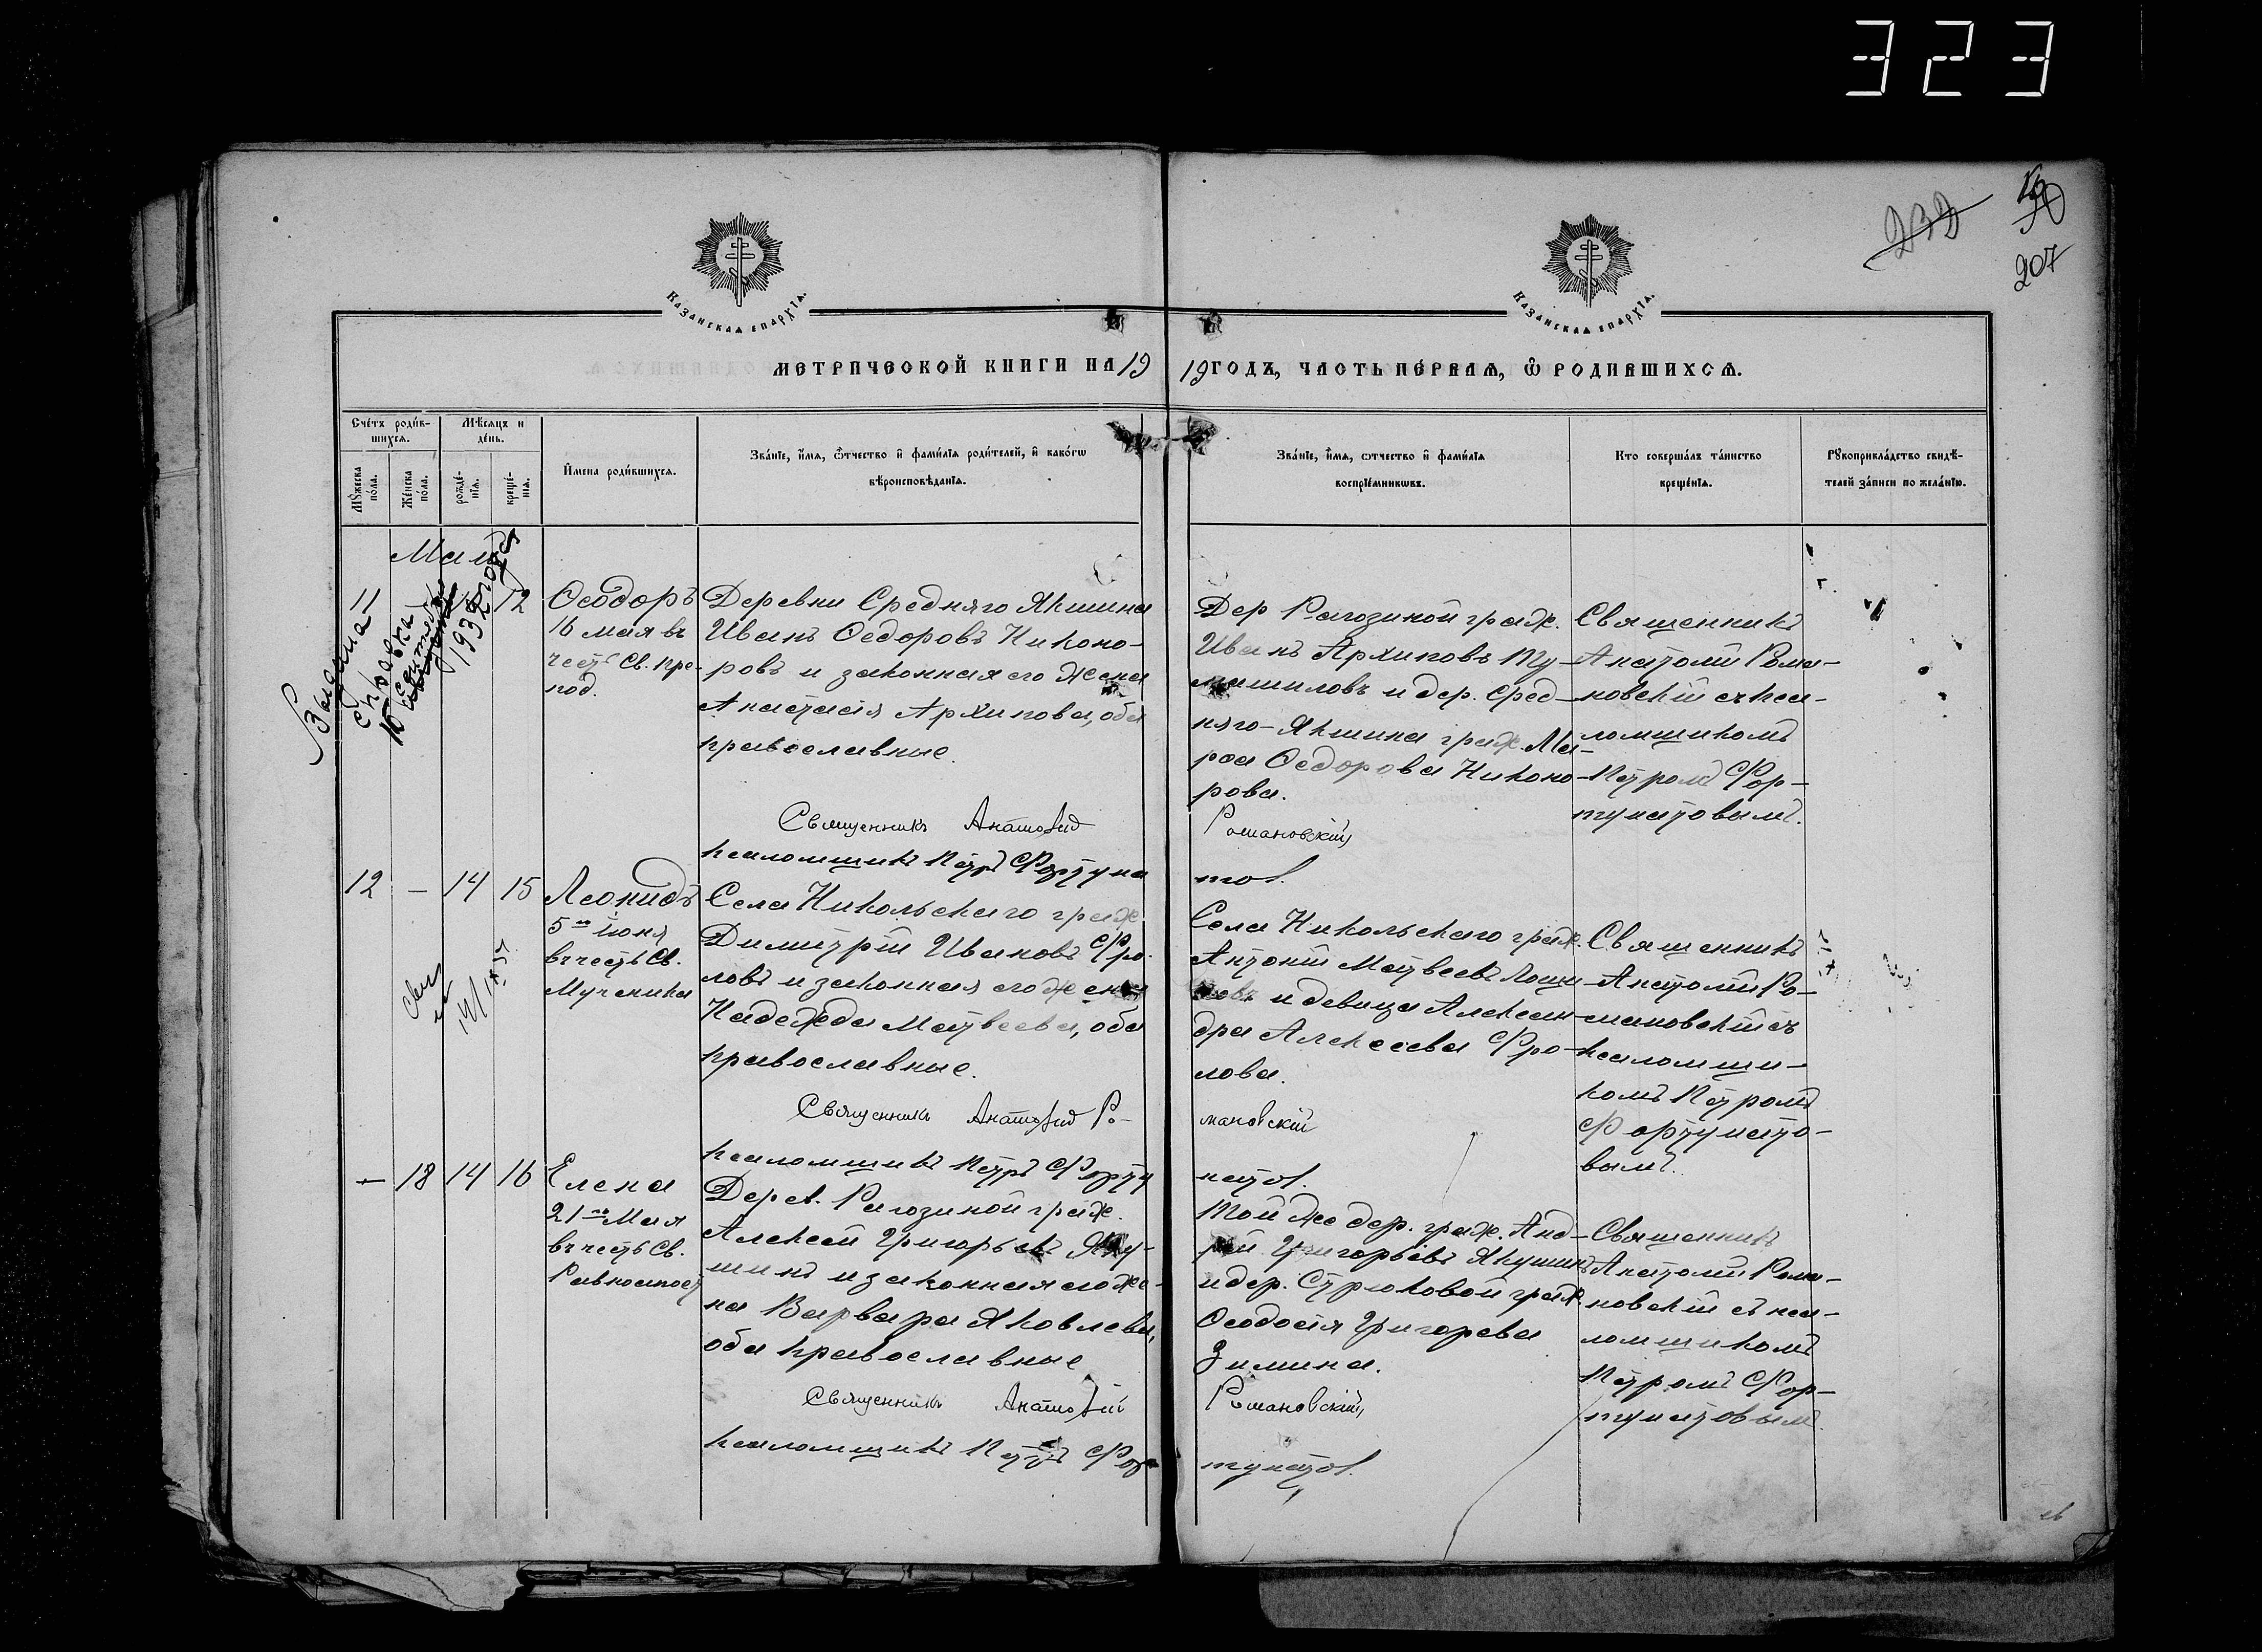 323
207
Казанская епархїя.
Казанская епархїя.
Метрической книги на 1919 годъ, часть первая, ѡ родившихся.
Счетъ родившихся.
Мѣсяцъ и день.
Мужеска пола.
Женска пола.
рожденїя.
крещенїя.
Имена родившихся.
Званїе, имя, ѿчество и фамилїя родителей, и какогѡ
вѣроисповѣданїя.
Званїе, имя, ѿчество и фамилїя
воспрїемниковъ.
Кто совершалъ таинство
крещенїя.
Рукоприкладство свидѣ-
телей записи по желанїю.
Май
11
12
Выдана
справка
1932 года
Ѳеодоръ
16 мая въ
честь Св. пре-
под.
Деревни Средняго Якшина
Иванъ Ѳедоровъ Никоно-
ровъ и законная его жена
Анастасія Архипова, оба
православные.
Священникъ Анатолий
псаломщикъ Петръ Фортуна
Дер Рагозиной граж.
Иванъ Архиповъ Ту-
машиловъ и дер. Сред-
няго-Якшина граж. Ма-
рѳа Ѳедорова Никоно-
рова.
Романовскій
тов.
Священникъ
Анатолій Рома-
новскій съ пса-
ломщикомъ
Петромъ Фор-
тунатовымъ.
12 — 14 15
Леонидъ
5го іюня
въ честь Св.
Мученика
Села Никольскаго граж.
Димитрій Ивановъ Фро-
ловъ и законная его жена
Надежда Матвеева, оба
православные.
Священникъ Анатолий Ро-
псаломщикъ Петръ Форту
Села Никольскаго граж.
Антоній Матвеевъ
и девица Алексан-
дра Алексеева Фро-
лова.
мановскій
натов.
Священникъ
Анатолій Ро-
мановскій съ
псаломщи-
комъ Петромъ
Фортунато-
вымъ.
— 18 14 16
Елена
21го Мая
въ честь Св.
Равноапост
Дерев. Рагозиной граж.
Алексей Григорьевъ Яку-
шинъ и законная его же-
на Варвара Яковлева,
оба православные
Священникъ Анатолій
псаломщикъ Петръ Фор
Той же дер. граж. Анд-
рей Григорьевъ Якушинъ
и дер. Стрюковой граж.
Ѳеодосія Григорева
Зимина.
Романовскій
тунатов.
Священникъ
Анатолій Рома-
новскій съ пса-
ломщикомъ
Петромъ Фор-
тунатовым.